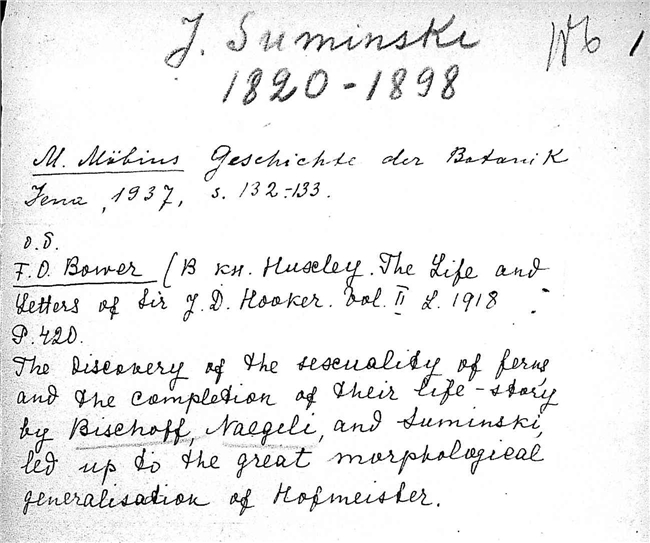 J. Suminski
1820-1898
M. Möbius Geschichte der Botanik
Jena, 1937, s. 132-133.
F. O. Bower (В кн. Huxley. The Life and
Letters of Sir J. D. Hooker. Vol. II L. 1918
P. 420.
The Discovery of the sexuality of ferns
and the completion of their life-story
by Bischoff, Naegeli, and Suminski,
led up to the great morphological
generalisation of Hofmeister.